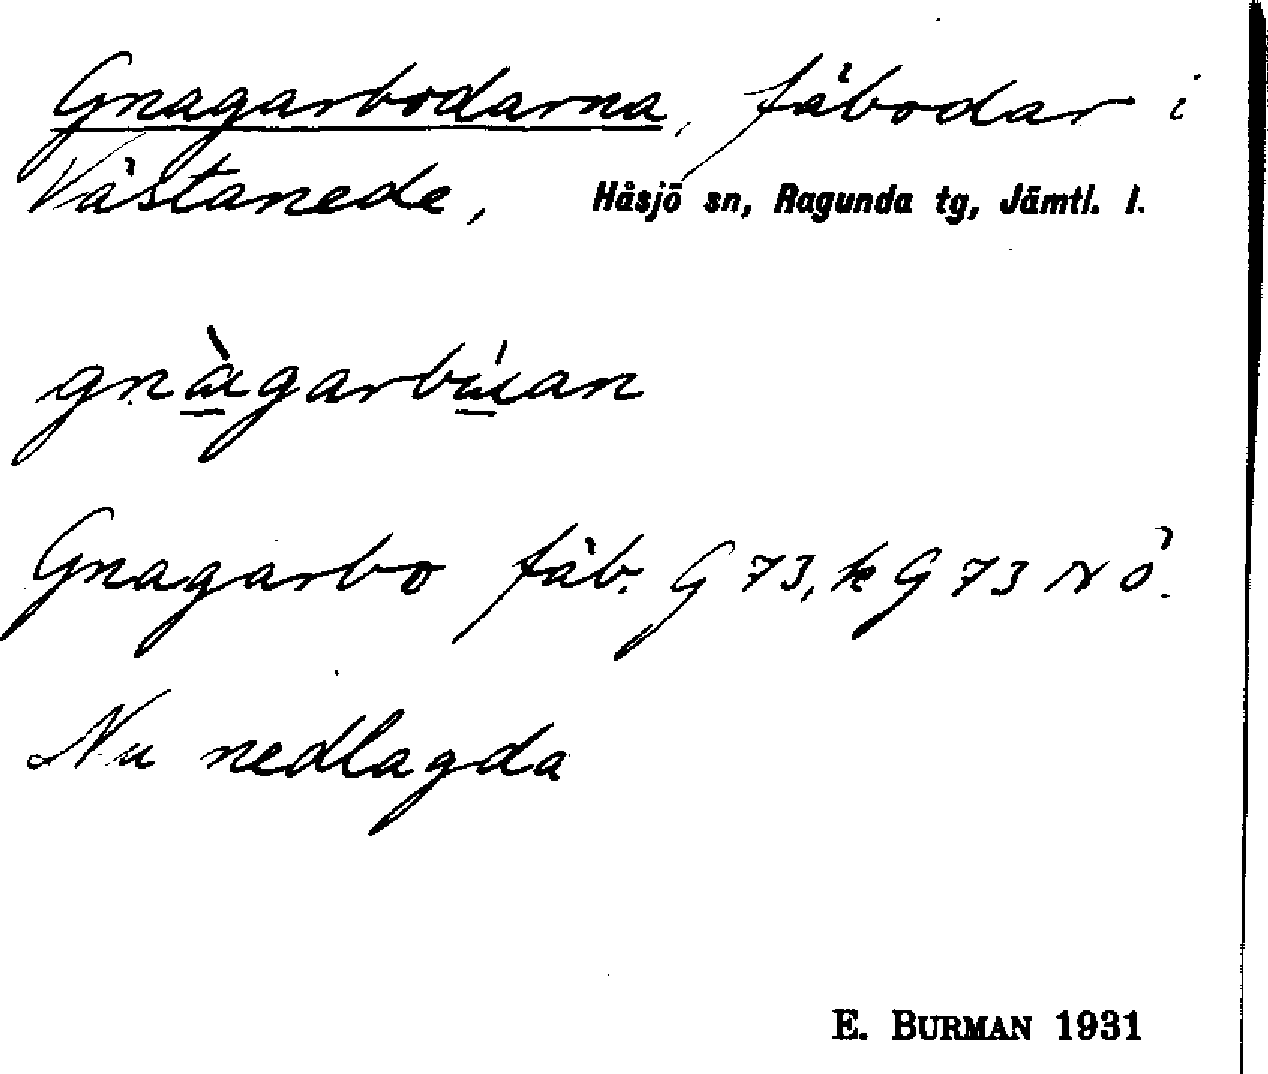 Gnagarbodarna, fäbodar i
Västanede, Håsjö sn, Ragunda tg, Jämtl. l.
gnàgarbúan
Gnagarbo fäb. G 73, k G 73 N Ö.
Nu nedlagda
E. BURMAN 1931